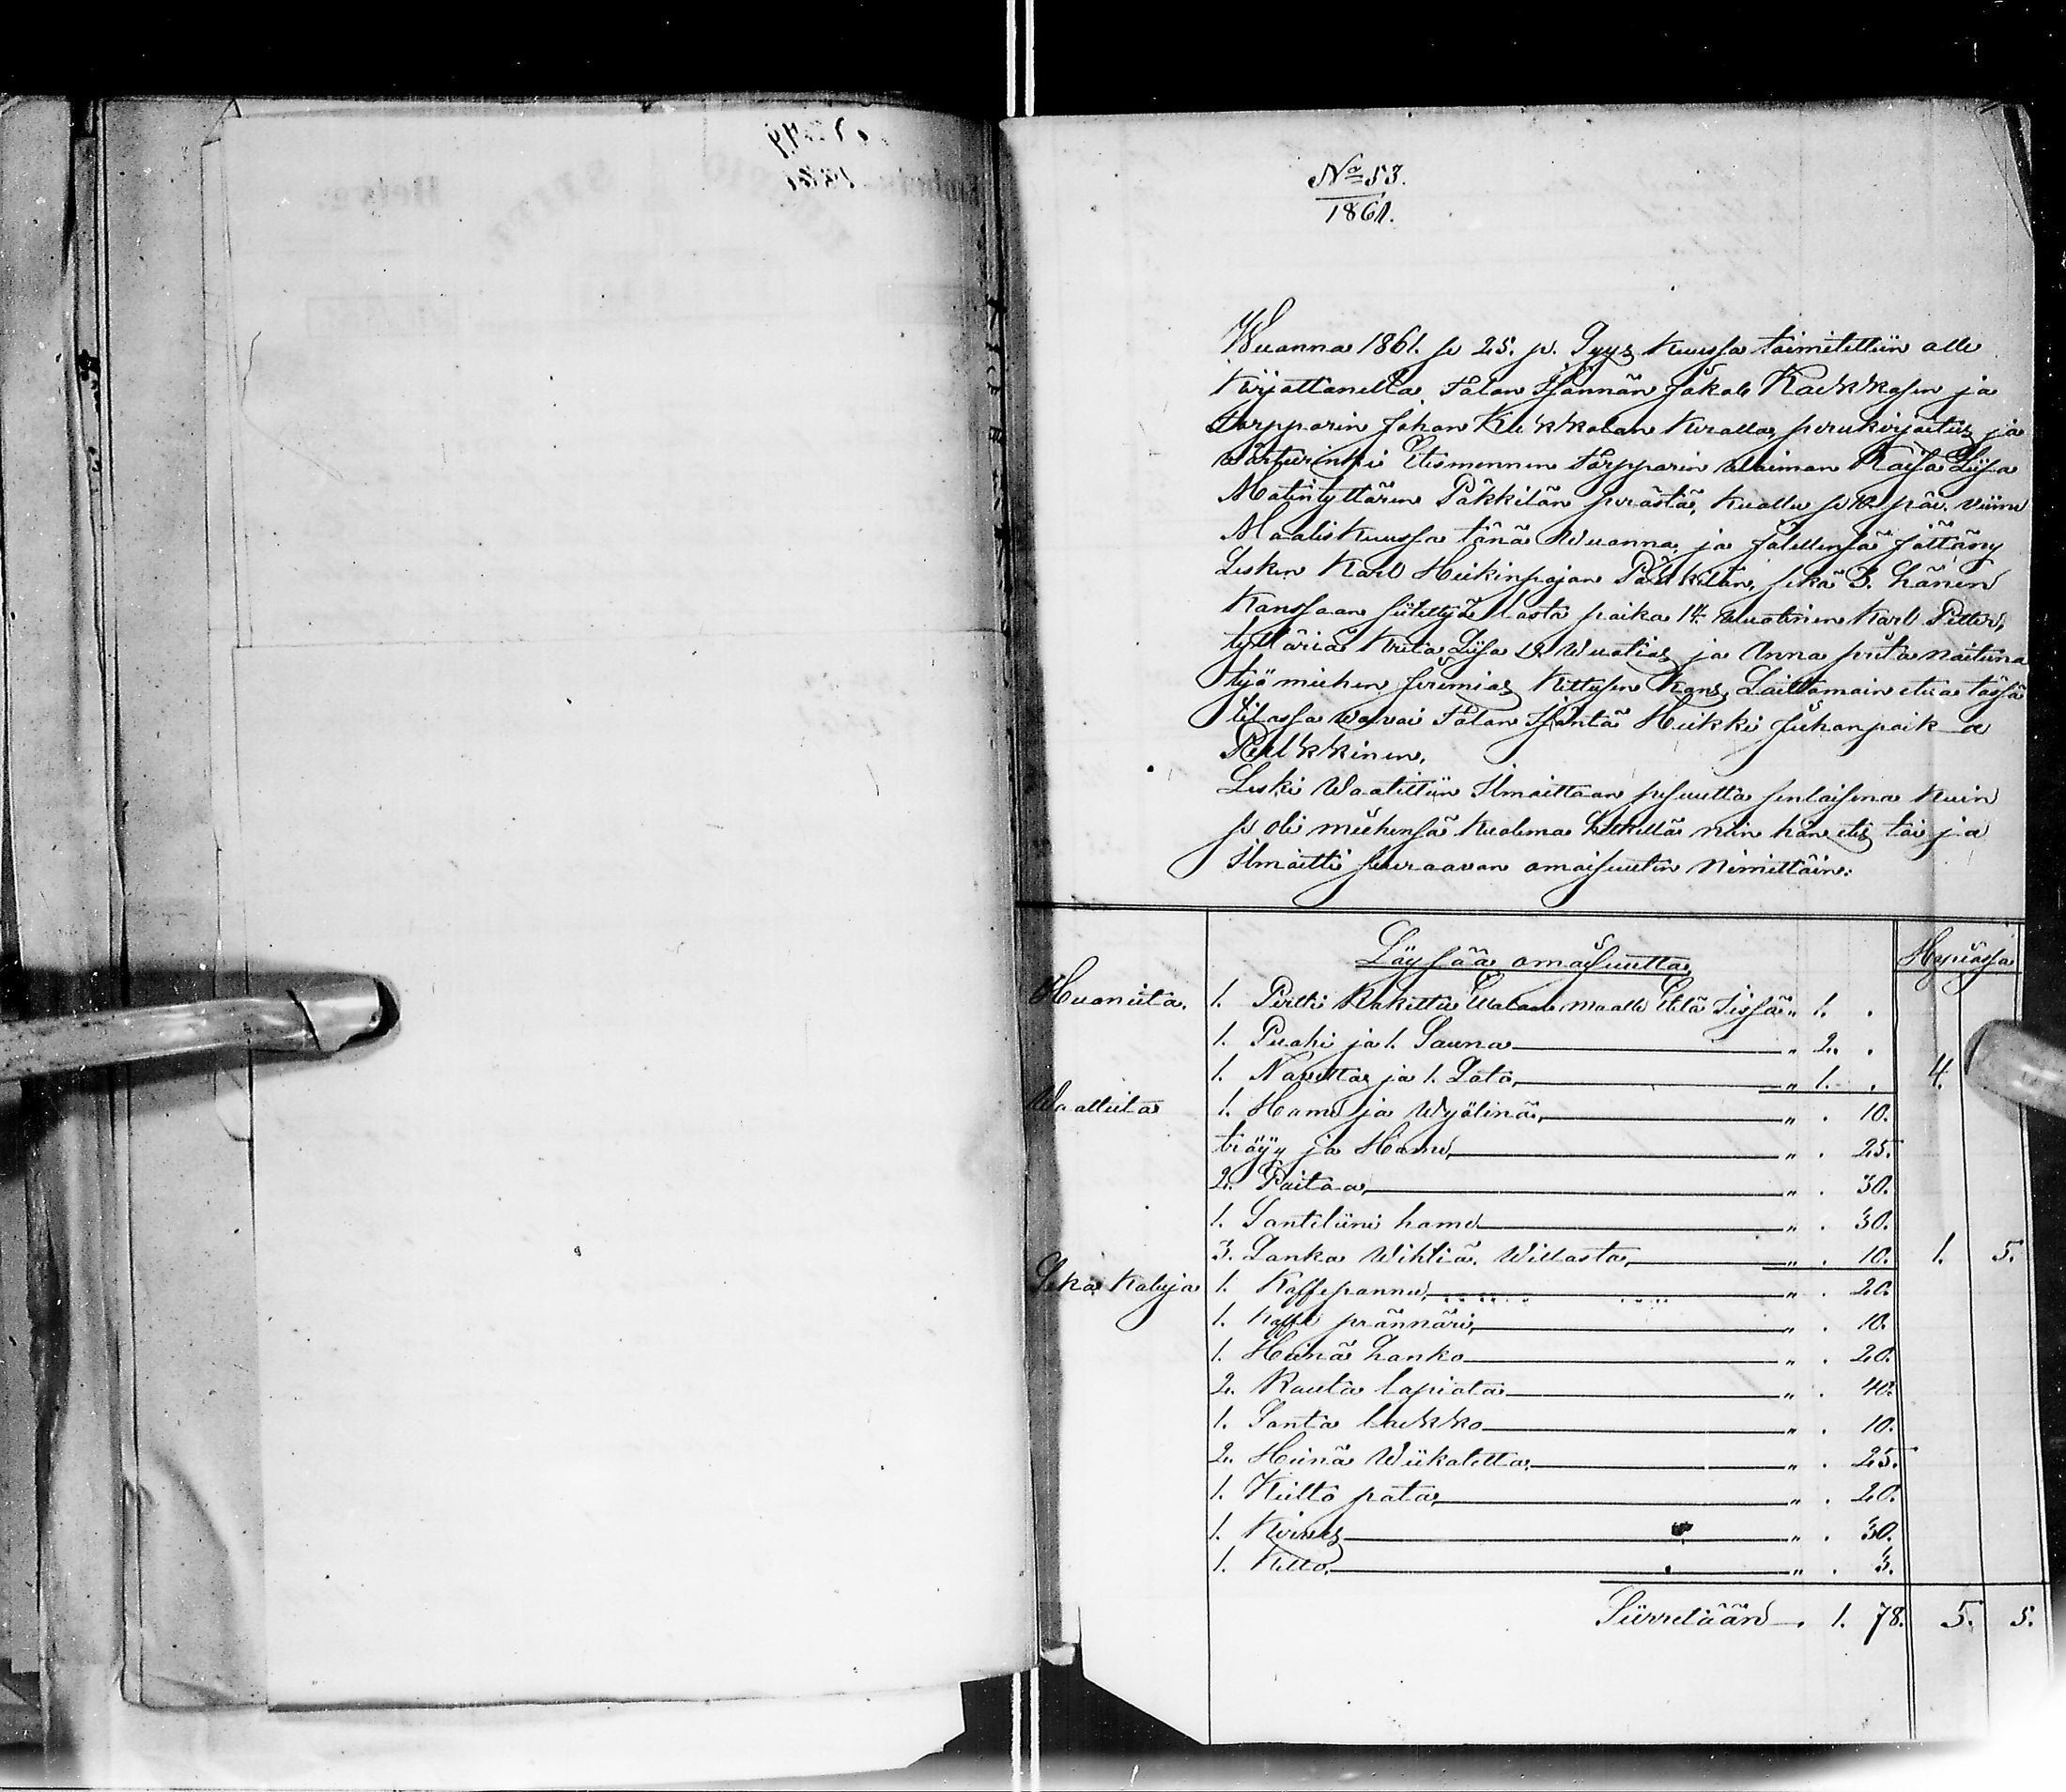 No 53.
1861.
Wuonna 1861. s 25. p. Syys kuussa toimitettiin alle
kirjottaneilta Talon Isännän Jakob Kaikkosen ja
torpparin Johan Kukkolan kuralla, perukirjoitus ja
wärteerinki Etesmennen torpparin waiman Kaisa Liisa
Matintyttären Päkkilän perästä, kuallu s 12. päi. viime
Maaliskuussa tänä Wuanna, ja jälellensä jättäny
Lesken Karl Heikinpojan Päkkilän, sekä 3. hänen
kanssaan siitettyä lasta poika 14. Wuotinen Karl Petter,
tyttäriä Kreta Liisa 19. Wuotias ja Anna Kreta naituna
työ miehen Jeremias Kettusen kans, Laittomain etua tässä
tilassa walvoi Talon Isäntä Heikki Juhanpoika
Pulkkinen.
Leski Waatittiin Ilmoittaan pesuutta senlaisena kuin
se oli miehensä kualema hetkellä niin hän etes toi ja
Ilmoitti seuraavan omaisuuten Nimittäin:
Löysää omaisuutta Hopiassa
Huoneita. 1. Pirtti Rakettu Walan maalle Etelä Sissä " 1. .
1. Puohi ja 1. Sauna " 2. .
1. Navetta ja 1. Lato, " 1. . 4.
Waatteita 1. Hame ja Wyölinä, " . 10.
tröijy ja Hame, " . 25.
2. Paitaa, " . 30.
1. Santeliini hame " . 30.
3. Lanka Wihtiä. Willasta, " . 10. 1. 5.
Seka kaluja 1. Kaffepannu, " . 20.
1. Kaffe prännäri, " . 10.
1. Heinä hanko " . 20.
2. Rauta lapiota " . 40.
1. Santa lukko " . 10.
2. Heinä Wiikatetta, " . 25.
1. Keitto pata, " . 20.
1. Kirves " . 30.
1. Kello, " . 3.
Siirretään . 1. 78. 5. 5.